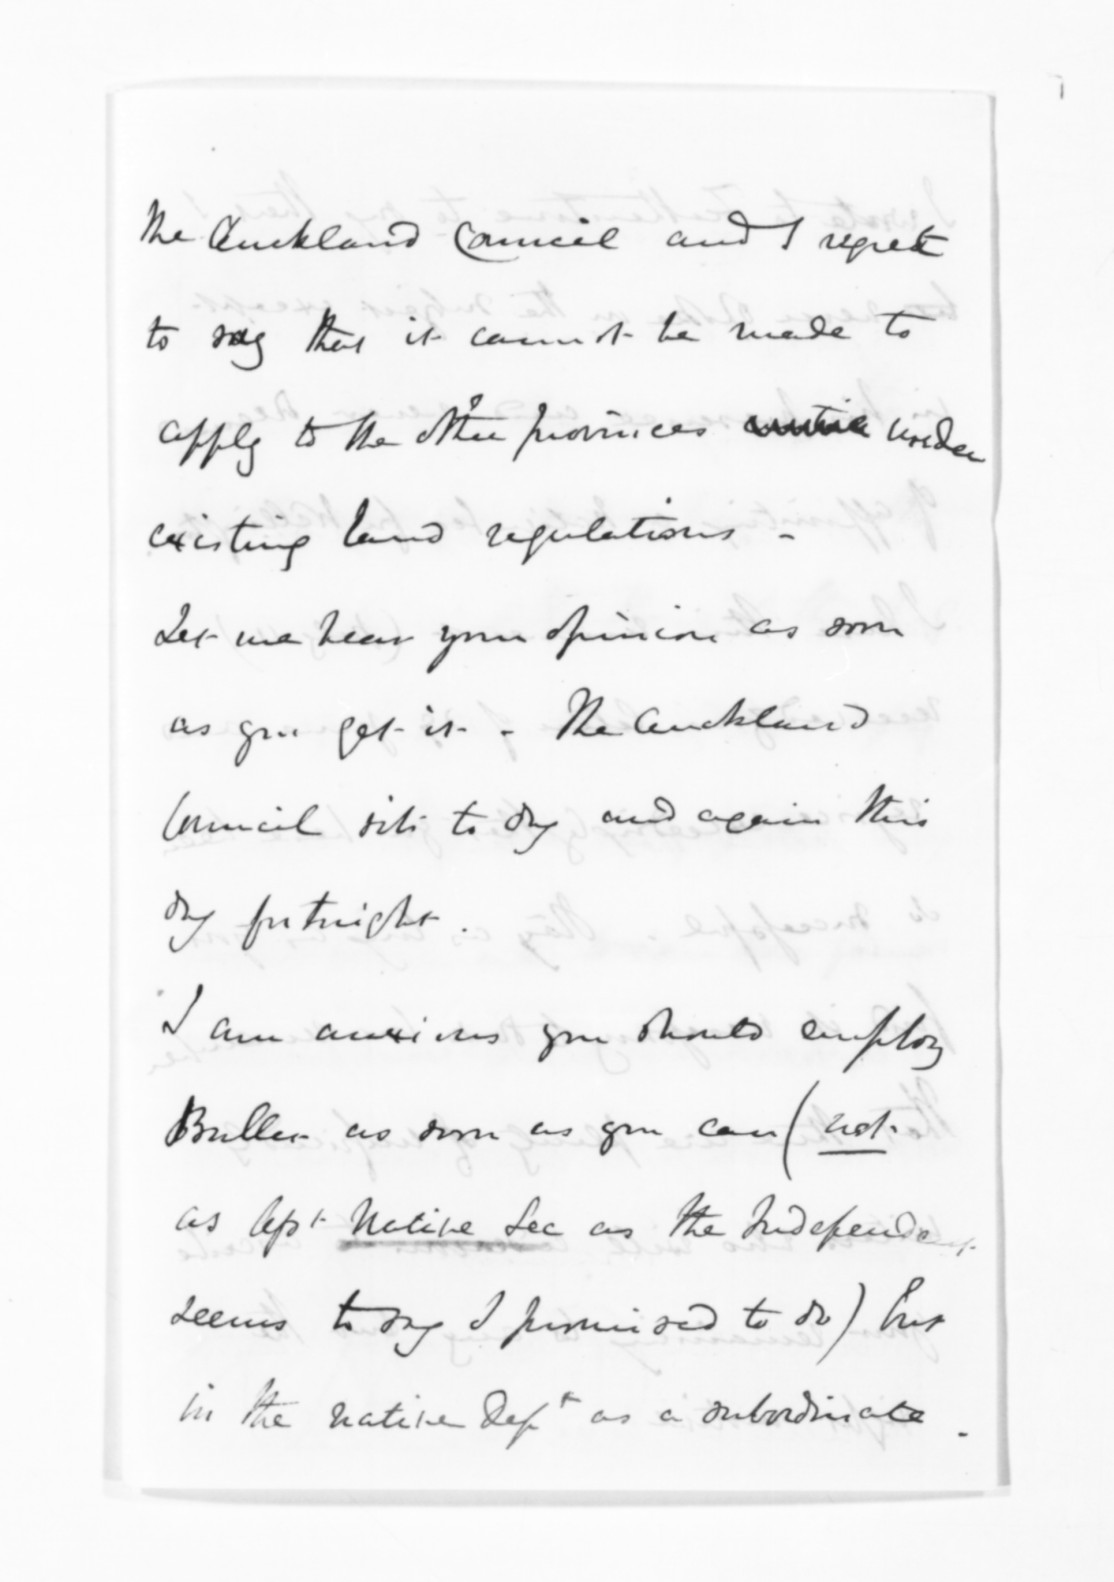 the Auckland Council and I regret
to say that it cannot be made to
apply to the other provinces under
existing land regulations -
Let me hear your opinion as soon
as you get it - The Auckland
Council sits to day and again this
day fortnight.
I am anxious you should employ
Buller as soon as you can (not
as Asst Native Sec as the Independent
seems to say I promised to do) but
in the native Dept as a subordinate.